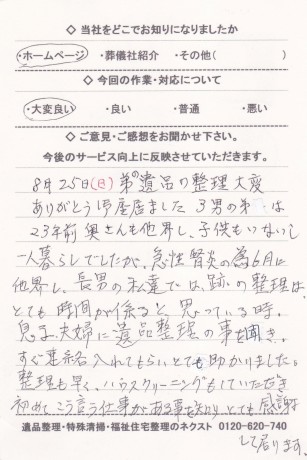 ◇ 当社をどこでお知りになりましたか ◇
・ホームページ ・葬儀社紹介 ・その他( )
◇ 今回の作業・対応について ◇
・大変良い ・良い ・普通 ・悪い
◇ ご意見・ご感想をお聞かせ下さい。 ◇
今後のサービス向上に反映させていただきます。
8月25日(日) 弟の遺品の整理大変
ありがとう御座居ました 3男の弟は
23年前奥さんも他界し、子供もいないし
一人暮らしでしたが、急性腎炎の為6月に
他界し、長男の私達では、跡の整理は、
とても時間が係ると思っている時、
息子夫婦に遺品整理の事を聞き、
すぐ連絡入れてもらいとても助かりました。
整理も早く、ハウスクリーニングもしていただき
初めてこう言う仕事がある事を知り、とても感謝
して居ります。
遺品整理・特殊清掃・福祉住宅整理のネクスト 0120-620-740